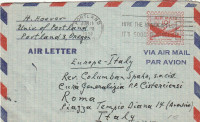 A. Hoever
Univ. of Portland
Portland 3 Oregon
PORTLAND
AIR LETTER
VIA AIR MAIL
PAR AVION
Europe - Italy
Rev. Columban Spahr, S.O.Cist.
Curia Generalizia O. Cisterciensi
Roma
Piazza Tempio Diana 14 (Aventino)
Italy